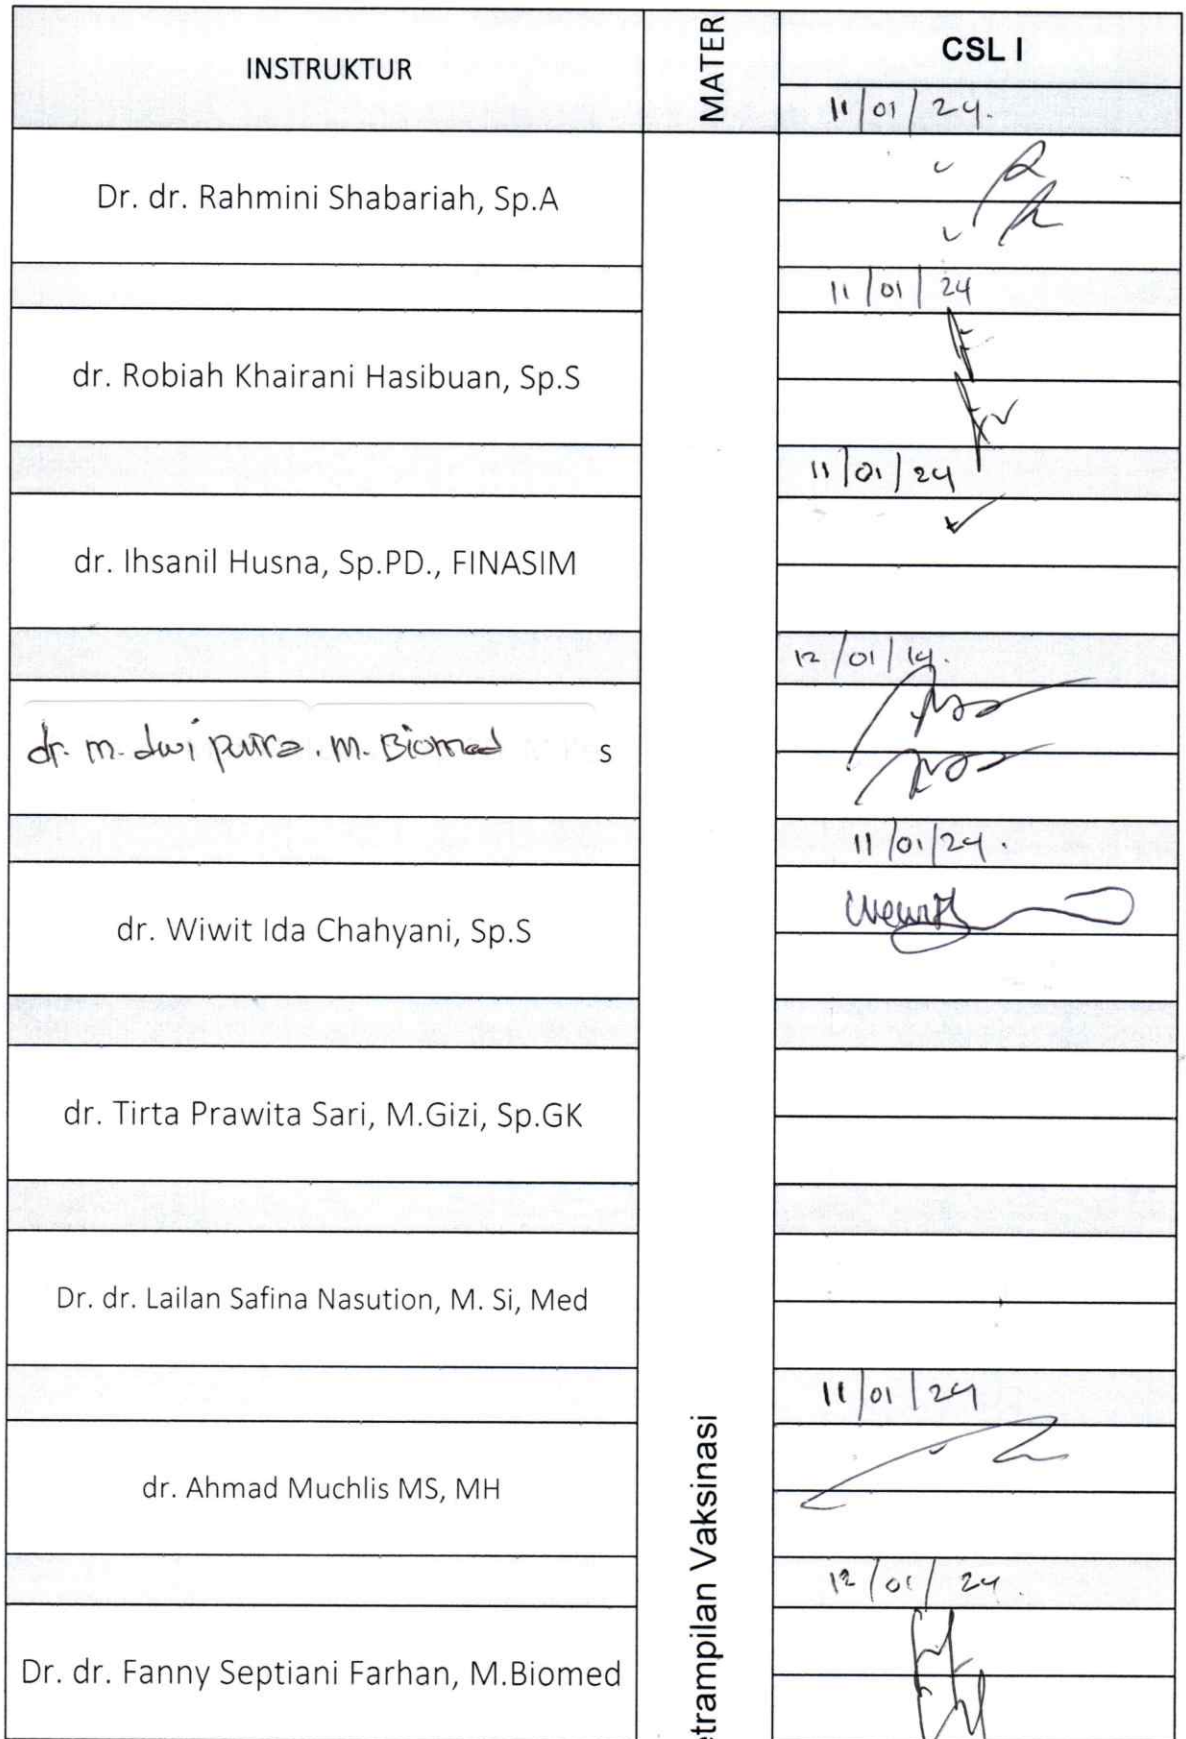 INSTRUKTUR
MATER
CSL I
11/01/24.
Dr. dr. Rahmini Shabariah, Sp.A
11/01/24
dr. Robiah Khairani Hasibuan, Sp.S
11/01/24
dr. Ihsanil Husna, Sp.PD., FINASIM
12/01/14.
dr. m. dwi putra. M. Biomed s
11/01/24.
dr. Wiwit Ida Chahyani, Sp.S
dr. Tirta Prawita Sari, M.Gizi, Sp.GK
Dr. dr. Lailan Safina Nasution, M. Si, Med
11/01/24
dr. Ahmad Muchlis MS, MH
etrampilan Vaksinasi
12/01/24.
Dr. dr. Fanny Septiani Farhan, M.Biomed